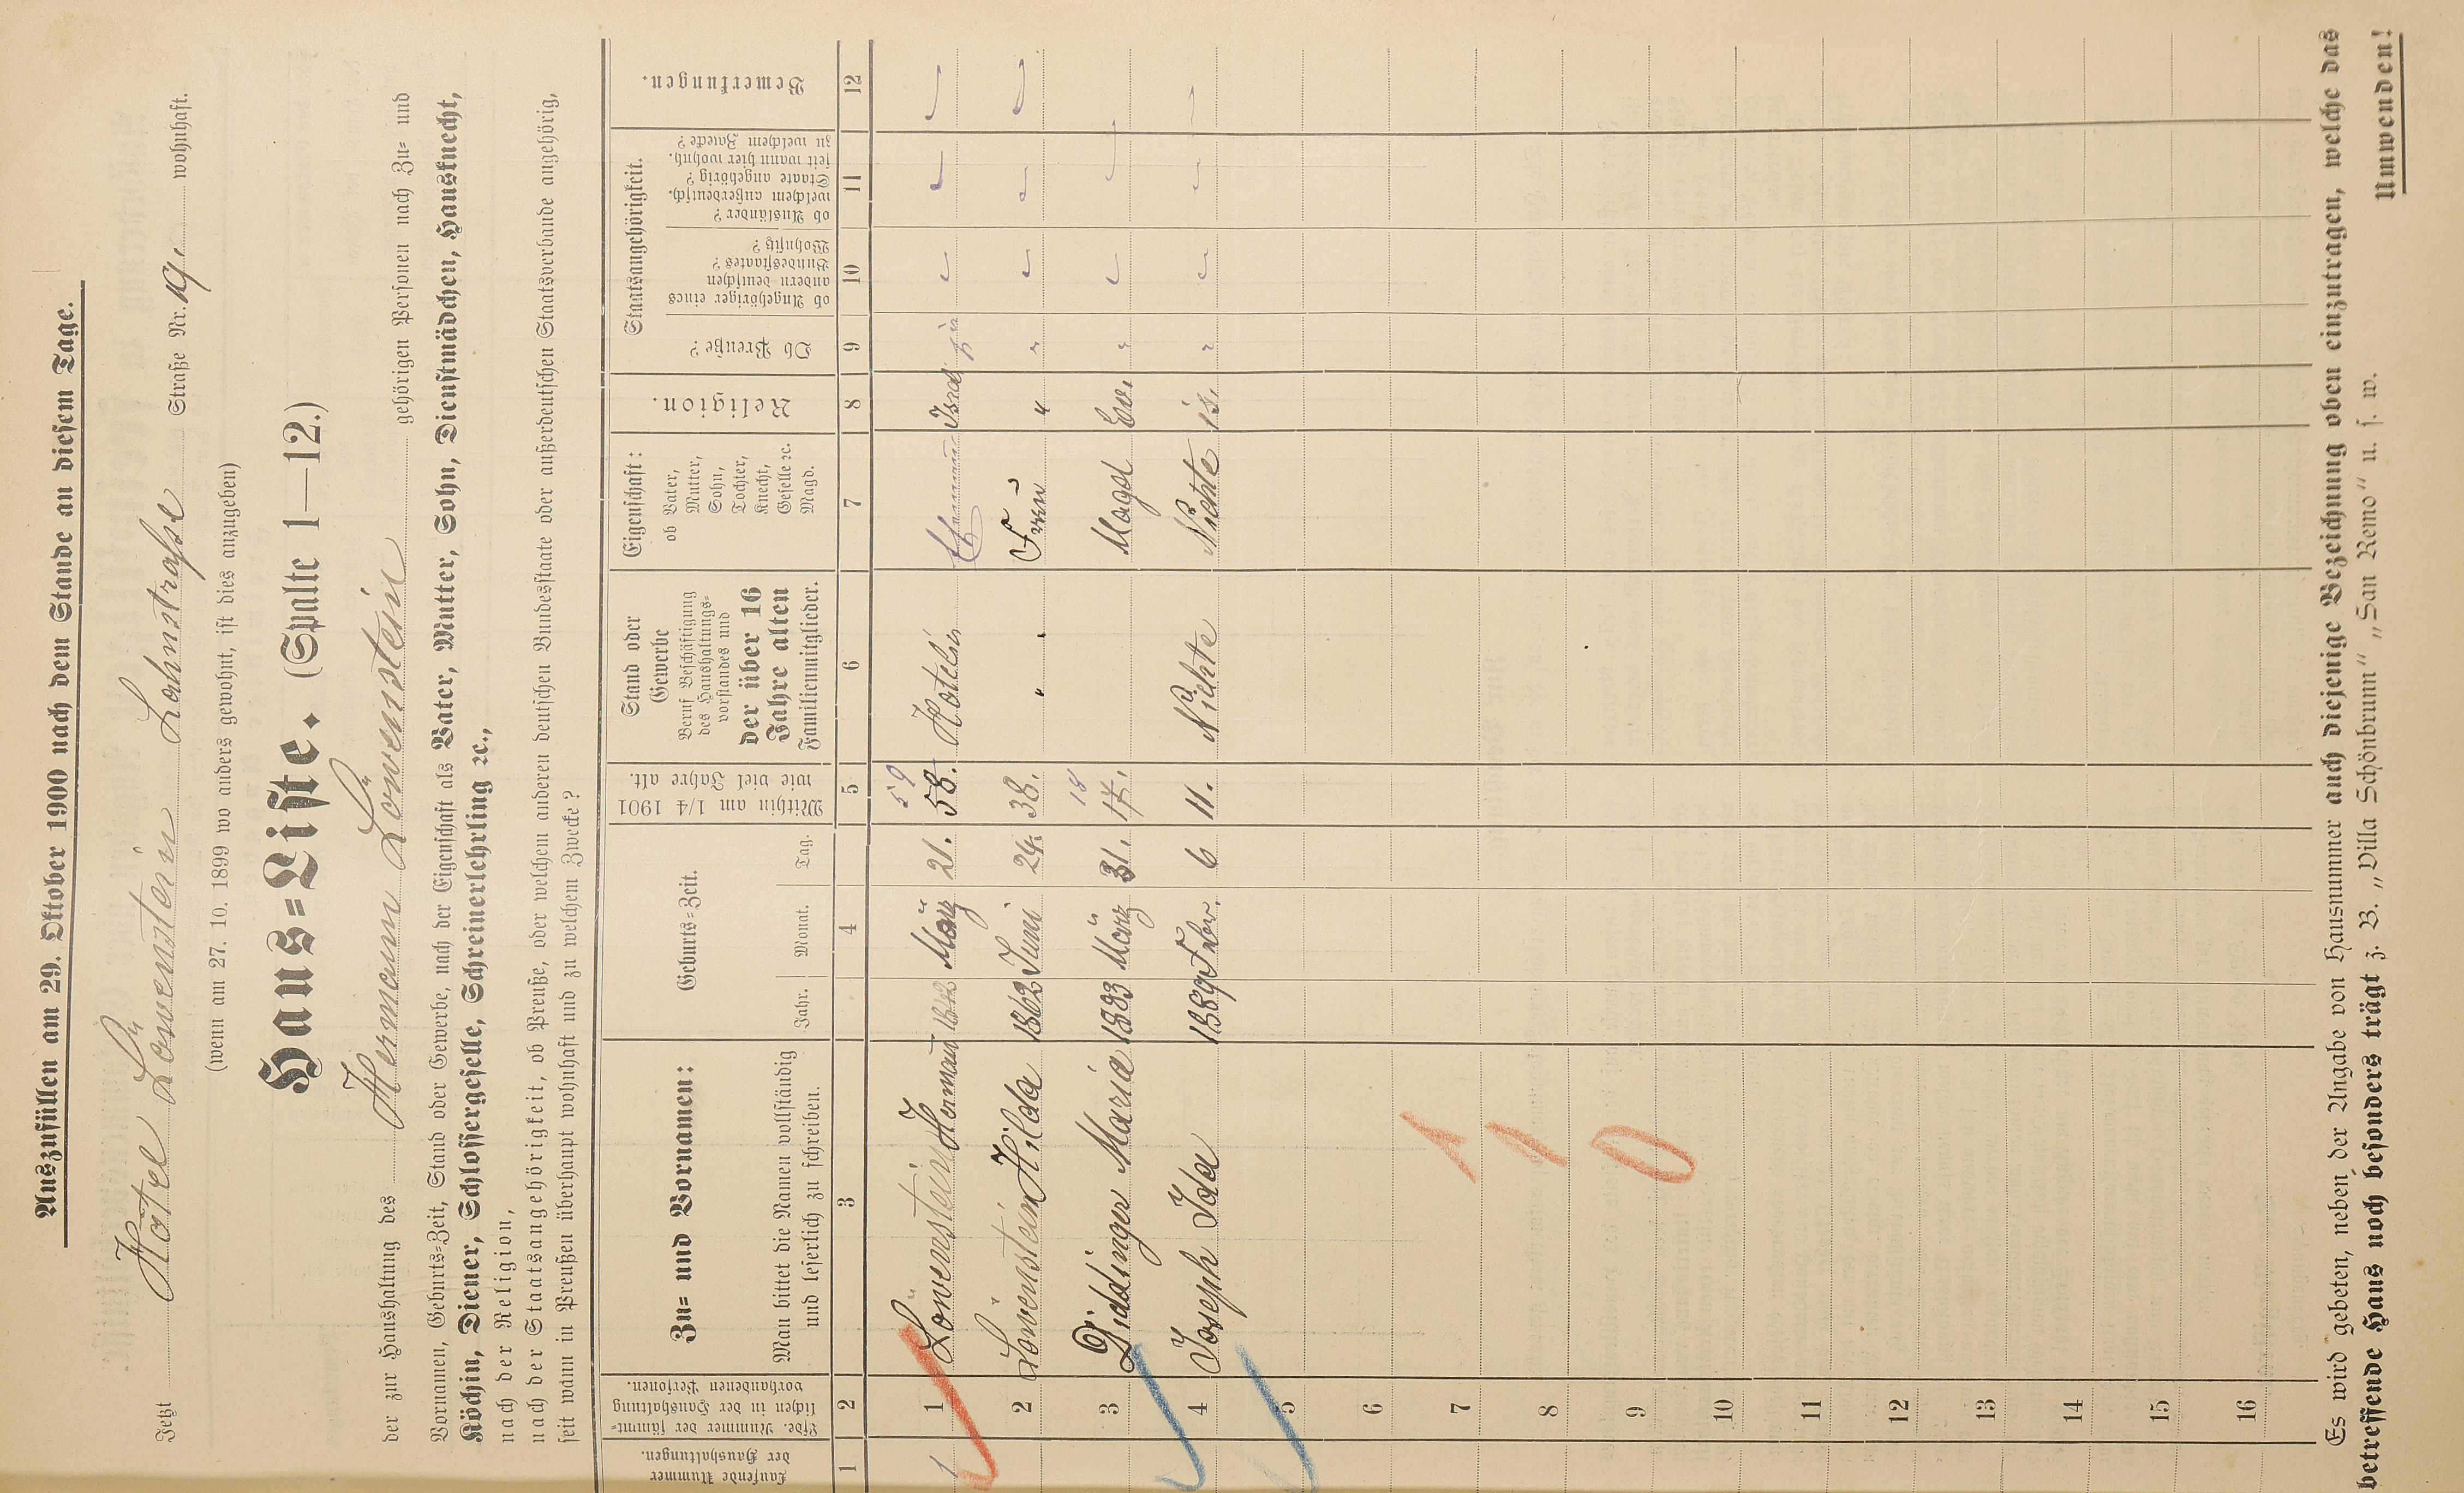 Auszufüllen am 29. Oktober 1900 nach dem Stande an diesem Tage.
Jetzt Hotel Löwenstein Lahnstraße Straße Nr. 19. wohnhaft.
(wenn am 27. 10. 1899 wo anders gewohnt, ist dies anzugeben)
Haus=Liste. (Spalte 1—12.)
der zur Haushaltung des Hermann Löwenstein gehörigen Personen nach Zu= und
Vornamen, Geburts=Zeit, Stand oder Gewerbe, nach der Eigenschaft als Vater, Mutter, Sohn, Dienstmädchen, Hausknecht,
Köchin, Diener, Schlossergeselle, Schreinerlehrling ꝛc.,
nach der Religion,
nach der Staatsangehörigkeit, ob Preuße, oder welchem anderen deutschen Bundesstaate oder außerdeutschen Staatsverbande angehörig,
seit wann in Preußen überhaupt wohnhaft und zu welchem Zwecke?
Laufende Nummer der Haushaltungen.
Lfde. Nummer der sämmtlichen in der Haushaltung vorhandenen Personen.
Zu= und Vornamen:
Man bittet die Namen vollständig
und leserlich zu schreiben.
Geburts=Zeit.
Jahr. Monat. Tag.
Mithin am 1/4 1901
wie viel Jahre alt.
Stand oder
Gewerbe
Beruf Beschäftigung
des Haushaltungs=
vorstandes und
der über 16
Jahre alten
Familienmitglieder.
Eigenschaft:
ob Vater,
Mutter,
Sohn,
Tochter,
Knecht,
Geselle ꝛc.
Magd.
Religion.
Staatsangehörigkeit.
Ob Preuße?
ob Angehöriger eines
andern deutschen
Bundesstaates?
Wohnsitz?
ob Ausländer?
welchem außerdeutsch.
Staate angehörig?
seit wann hier wohnh.
zu welchem Zwecke?
Bemerkungen.
1 2 3 4 5 6 7 8 9 10 11 12
1 1 Löwenstein Hermann 1842 März 21. 59 58. Hotelier Ehemann Isral ja
2 Löwenstein Hilda 1862 Juni 24. 38. " " Frau " "
3 Diddinger Maria 1883 März 31. 18 17. Magd Ev. "
4 Joseph Ida 1889 Febr. 6 11. Nichte Nichte is. "
5
6
7 1
8 1
9 0
10
11
12
13
14
15
16
Es wird gebeten, neben der Angabe von Hausnummer auch diejenige Bezeichnung oben einzutragen, welche das
betreffende Haus noch besonders trägt z. B. „Villa Schönbrunn" „San Remo" u. s. w.
Umwenden!